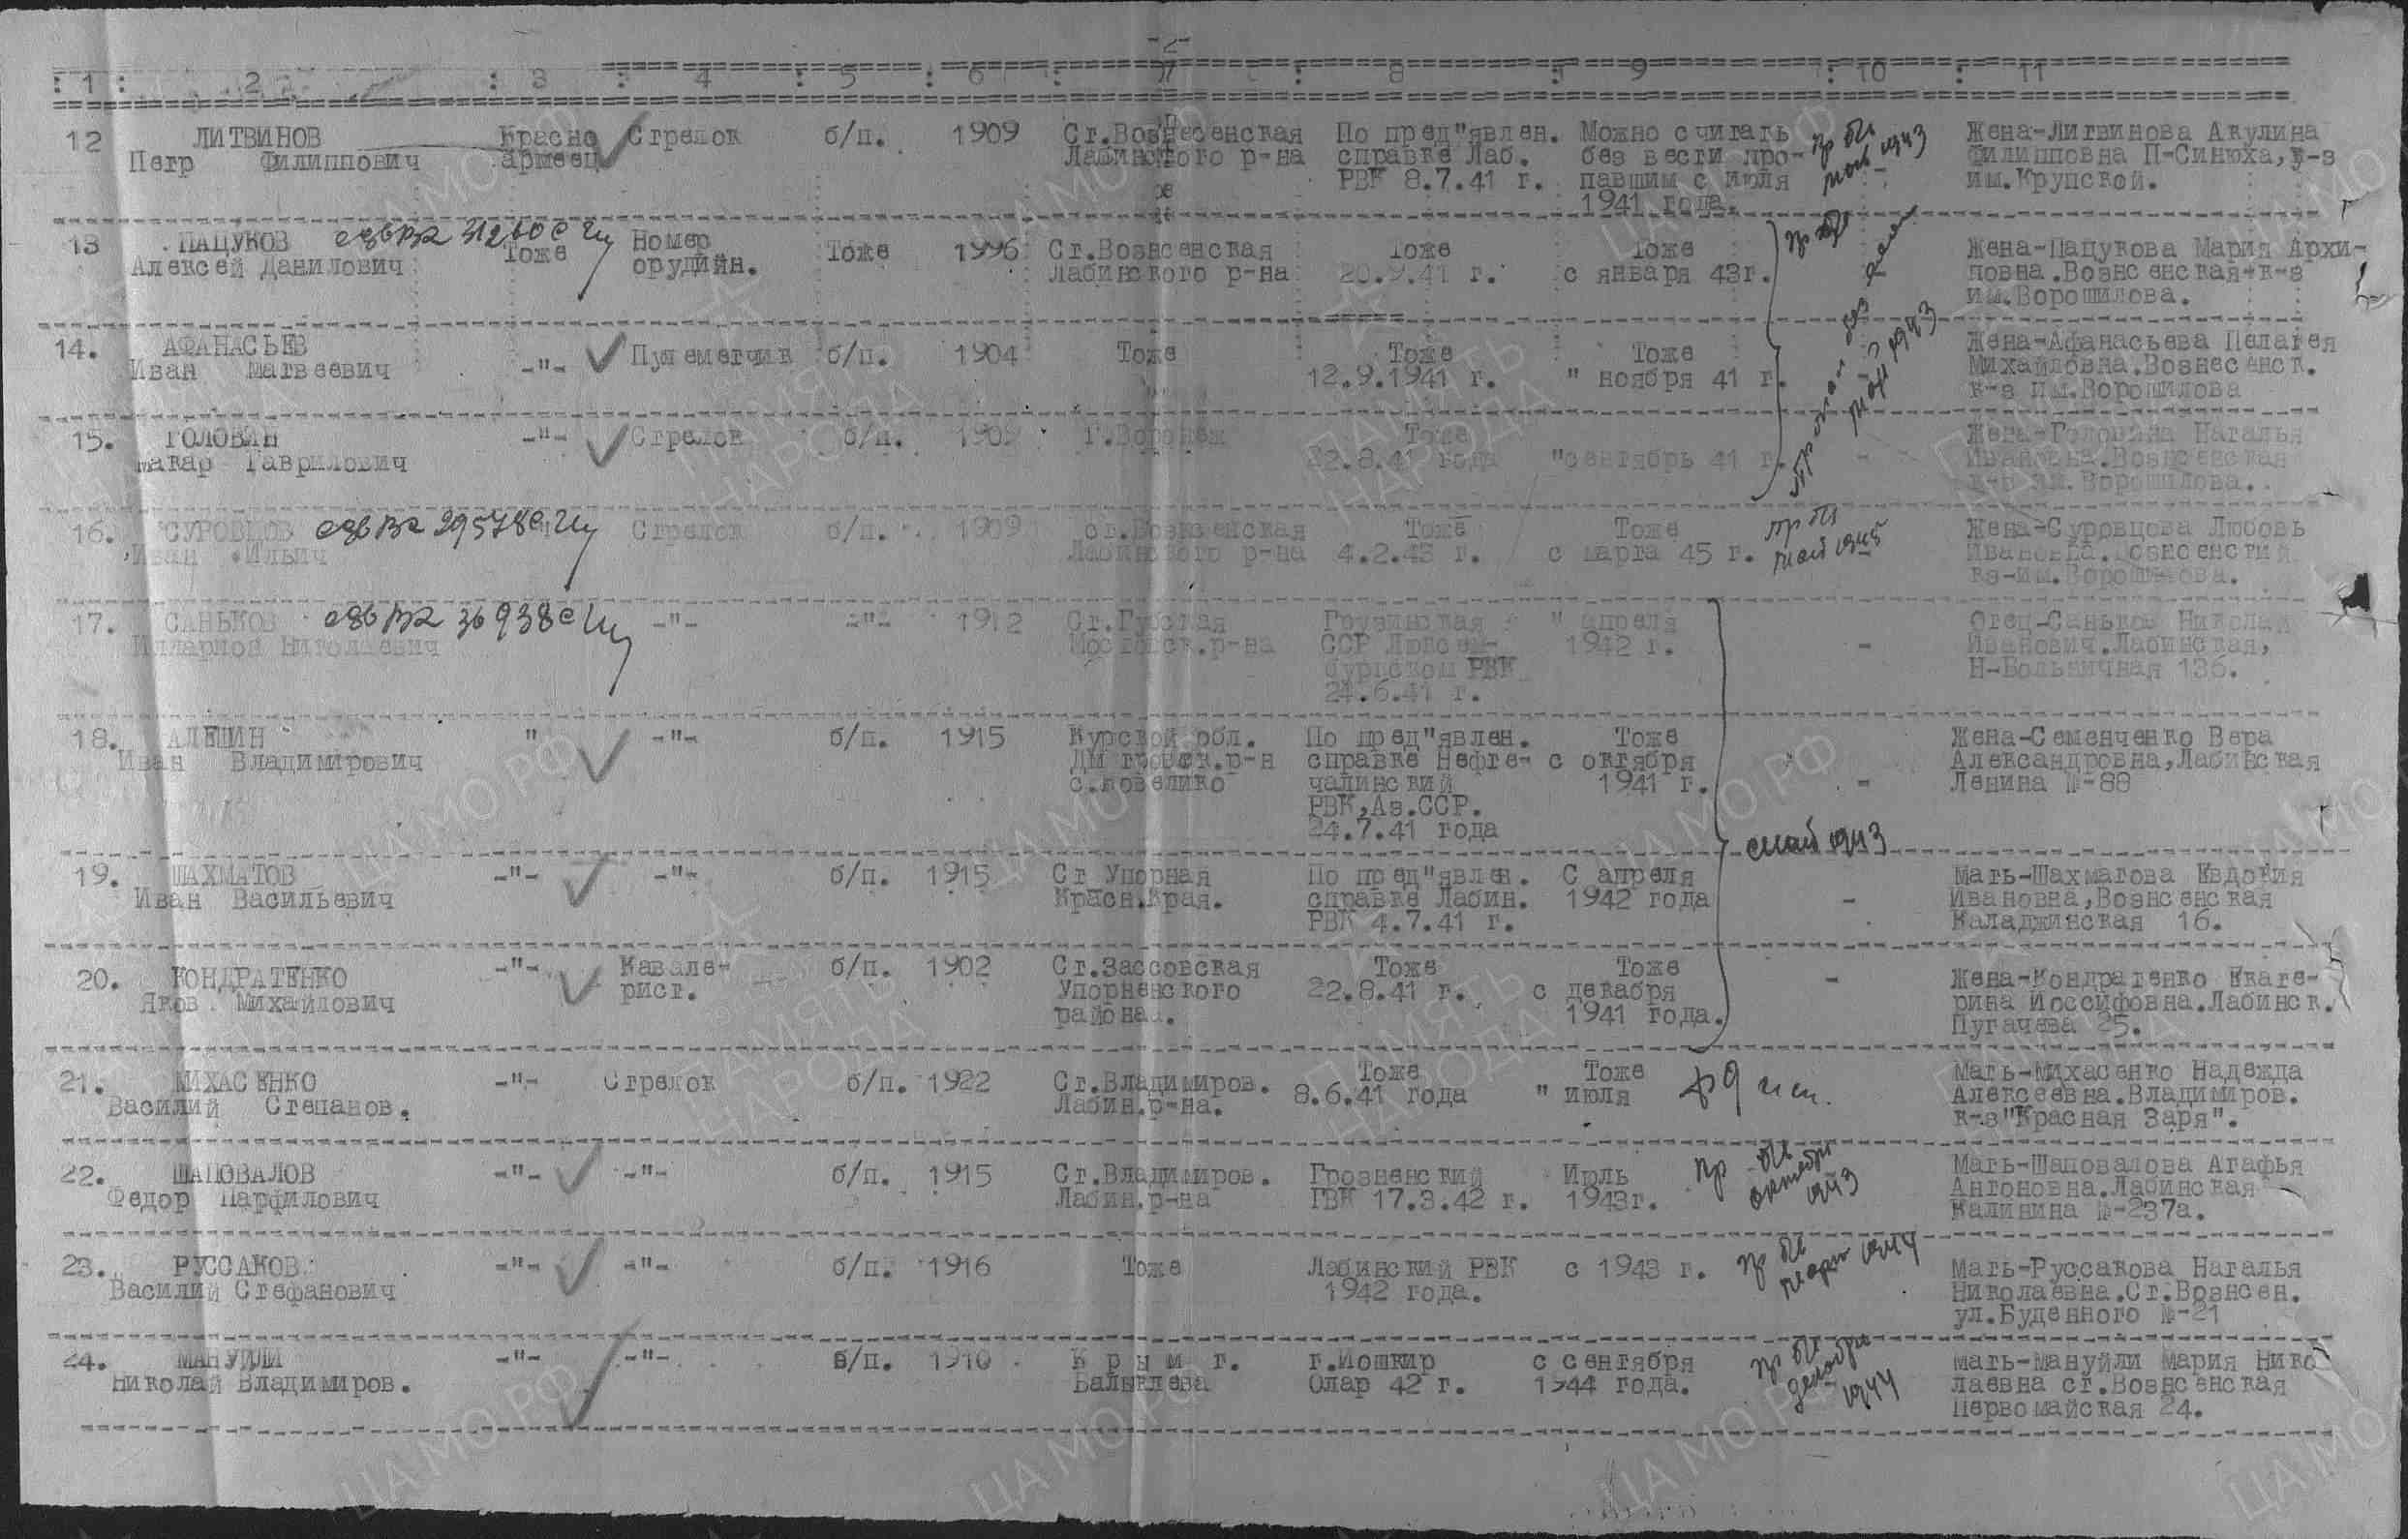 -2-
: 1 : 2 : 3 : 4 : 5 : 6 : 7 : 8 : 9 : 10 : 11
12 ЛИТВИНОВ Красно Стрелок б/п. 1909 Ст.Вознесенская По пред"явлен. Можно считать пр б/и Жена-Литвинова Акулина
Петр Филиппович армеец Лабинского р-на справке Лаб. без вести про- 1943 Филипповна П-Синюха, к-з
РВК 8.7.41 г. павшим с июля им.Крупской.
1941 года.
13 ПАЦУКОВ Тоже Номер Тоже 1996 Ст.Вознсенская Тоже Тоже Жена-Пацукова Мария Архи-
Алексей Данилович орудийн. Лабинского р-на 20.9.41 г. с января 43г. повна.Вознсенская-к-з
им.Ворошилова.
14. АФАНАСЬЕВ -"- Пулеметчик б/п. 1904 Тоже Тоже Тоже 1943 Жена-Афанасьева Пелагея
Иван Матвеевич 12.9.1941 г. " ноября 41 г. Михайловна.Вознесенск.
к-з им.Ворошилова
15. ГОЛОВИН -"- Стрелок б/п. 1909 Г.Воронеж Тоже Жена-Головина Наталья
Макар Гаврилович 22.8.41 года "сентябрь 41 г. - Ивановна.Вознсенская
к-з им.Ворошилова.
16. СУРОВЦОВ 29578 Стрелок б/п. 1909 ст.Вознсенская Тоже Тоже пр б/и Жена-Суровцова Любовь
Иван Ильич Лабинского р-на 4.2.43 г. с марта 45 г. май 1945 Ивановна.Вознсенский
кз-им.Ворошилова.
17. САНЬКОВ 36938 -"- -"- 1912 Ст.Губская Грузинская " апреля Отец-Саньков Николай
Илларион Николаевич Мостовск.р-на ССР Люксем- 1942 г. - Иванович.Лабинская,
бургском РВК Н-Больничная 136.
24.6.41 г.
18. АЛЕШИН " -"- б/п. 1915 Курской обл. По пред"явлен. Тоже Жена-Семенченко Вера
Иван Владимирович Дмтровск.р-н справке Нефте- с октября Александровна,Лабинская
чалинский 1941 г. - Ленина №-88
РВК,Аз.ССР.
24.7.41 года
май 1943
19. ШАХМАТОВ -"- -"- б/п. 1915 Ст Упорная По пред"явлен. С апреля Мать-Шахматова Евдокия
Иван Васильевич Красн.Края. справке Лабин. 1942 года - Ивановна,Вознсенская
РВК 4.7.41 г. Каладжинская 16.
20. КОНДРАТЕНКО -"- Кавале- б/п. 1902 Ст.Зассовская Тоже Тоже - Жена-Кондратенко Екате-
Яков Михайлович рист. Упорненского 22.8.41 г. с декабря рина Йоссифовна.Лабинск.
района. 1941 года. Пугачева 25.
21. МИХАСЕНКО -"- Стрелок б/п. 1922 Ст.Владимиров. Тоже Тоже Мать-Михасенко Надежда
Василий Степанов. Лабин.р-на. 8.6.41 года " июля Алексеевна.Владимиров.
к-з"Красная Заря".
22. ШАПОВАЛОВ -"- -"- б/п. 1915 Ст.Владимиров. Грозненский Июль пр б/и Мать-Шаповалова Агафья
Федор Парфилович Лабин.р-на ГВК 17.3.42 г. 1943г. октябрь 1943 Антоновна.Лабинская
Калинина №-237а.
23. РУССАКОВ -"- -"- б/п. 1916 Тоже Лабинский РВК с 1943 г. пр б/и март 1944 Мать-Руссакова Наталья
Василий Стефанович 1942 года. Николаевна.Ст.Вознсен.
ул.Буденного №-21
24. МАНУЙЛИ -"- -"- б/п. 1910 Крым г. г.Йошкир с сентября пр б/и Мать-Мануйли Мария Нико
Николай Владимиров. Олар 42 г. 1944 года. декабрь 1944 лаевна ст.Вознсенская
Первомайская 24.
ЦА МО РФ
ПАМЯТЬ
НАРОДА